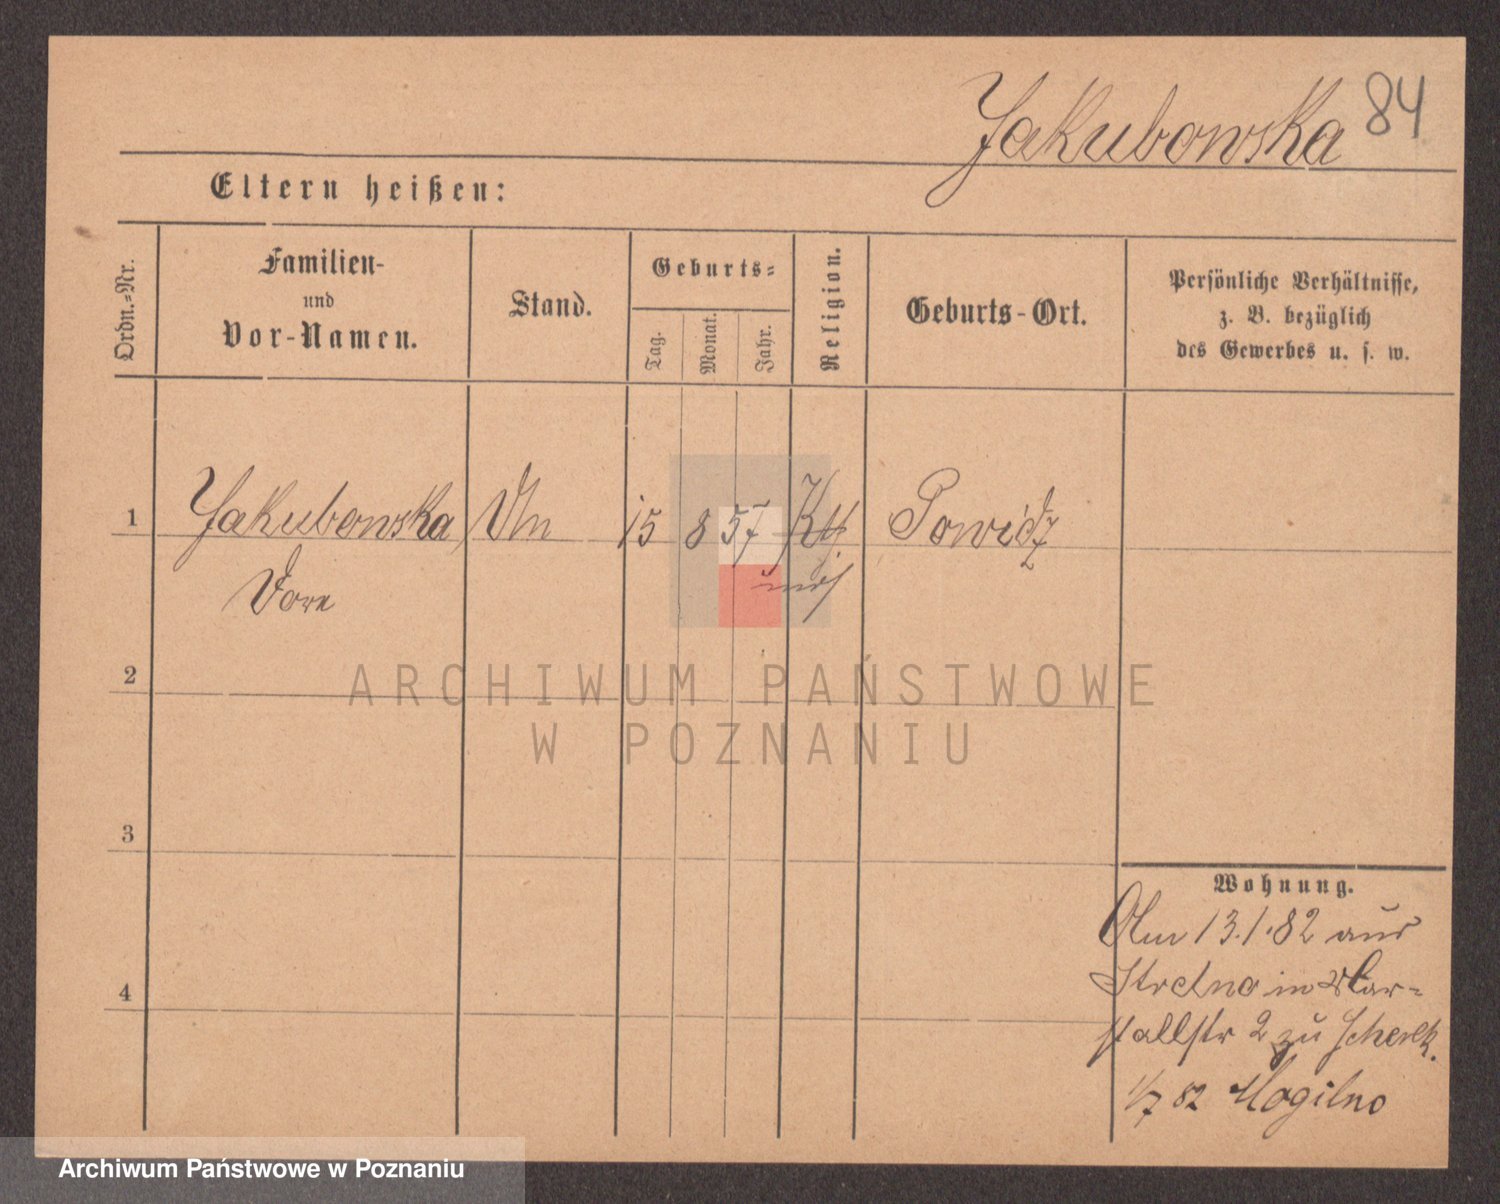 Jakubowska 84
Eltern heißen:
Ordn.-Nr.
Familien-
und
Vor-Namen.
Stand.
Geburts-
Tag.
Monat.
Jahr.
Religion.
Geburts-Ort.
Persönliche Verhältnisse,
z. B. bezüglich
des Gewerbes u. s. w.
1 Jakubowska 15 8 57 Powidz
2
3
4
Wohnung.
13.1.82 aus
Strelno in Mar-
stallstr 2 zu Scherk.
1/7 82 Mogilno
ARCHIWUM PAŃSTWOWE
W POZNANIU
Archiwum Państwowe w Poznaniu